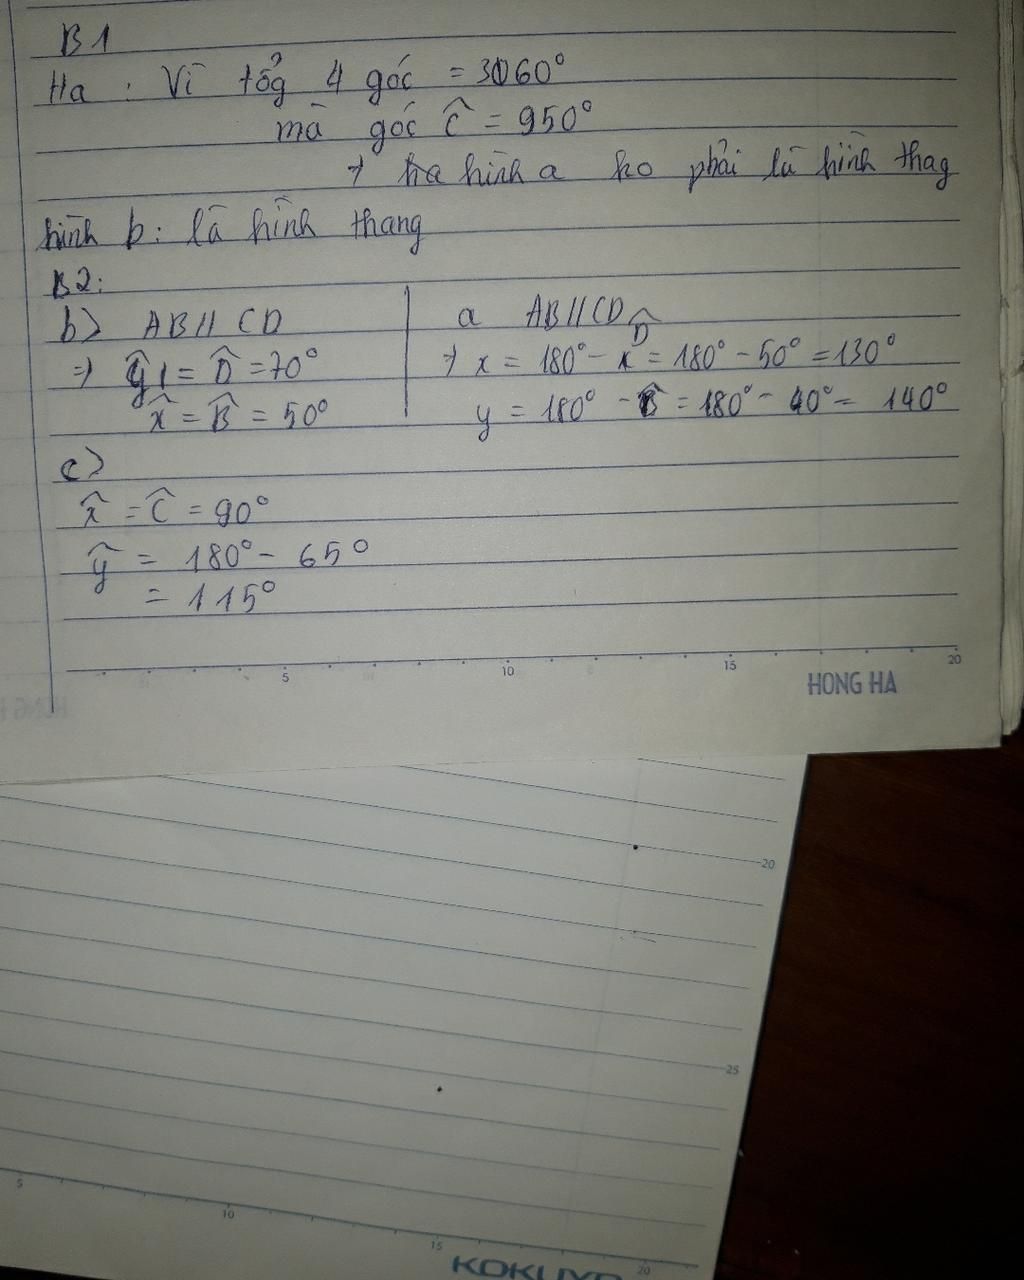 B1
Ha : Vì tổg 4 góc = 3060°
mà góc Ĉ = 950°
→ hình a ko phải là hình thag
hình b: là hình thang
B2:
b) AB // CD
⇒ ŷ1 = D̂ = 70°
x̂ = B̂ = 50°
a AB // CD
D̂
→ x = 180° - x = 180° - 50° = 130°
y = 180° - B̂ = 180° - 40° = 140°
c)
x̂ = Ĉ = 90°
ŷ = 180° - 65°
= 115°
5 10 15 20
HONG HA
20
25
5 10 15 20
KOKUYO